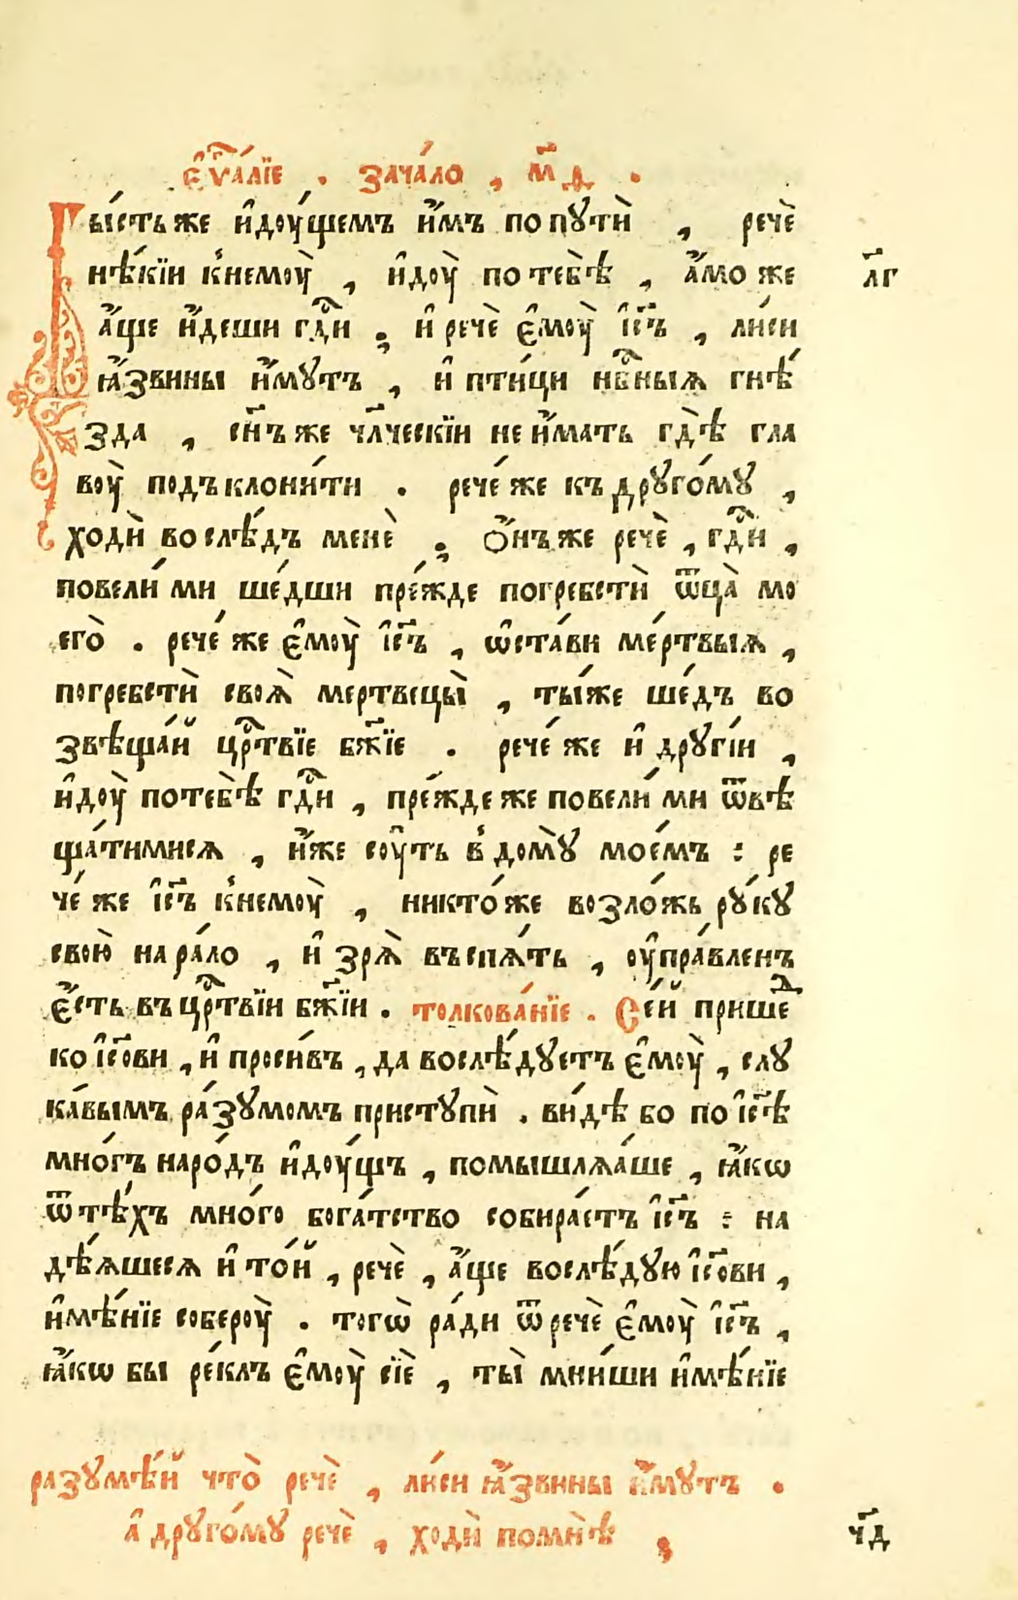 є҆ѵⷢ҇а́лїе . зача́ло , м҃д .
Бы́сть же и҆дѹ́щемъ и҆̀мъ по пꙋтѝ , речѐ
нѣ́кїи к̾немꙋ̀ , и҆дꙋ̀ по тебѣ̀ , а҆́може
а҆́ще и҆́деши гдⷭ҇и , и҆ речѐ є҆мꙋ̀ і҆с҃ъ , ли́си
ꙗ҆́звины и҆́мꙋтъ , и҆ пти́ци нбⷭ҇ныѧ гнѣ́
зда , сн҃ъ же чл҃ческїи не и҆́мать гдѣ̀ гла
вꙋ̀ подъклони́ти . рече́ же къ дрꙋго́мꙋ ,
ходѝ во слѣ́дъ менѐ ; Ѻ҆́нъ же речѐ , гдⷭ҇и ,
повели́ ми ше́дши пре́жде погребстѝ ѿца̀ мо
его̀ . рече́ же є҆мꙋ̀ і҆с҃ъ , ѡ҆ста́ви ме́ртвыѧ ,
погребстѝ своѧ̀ мертвецы̀ , ты́же ше́дъ во
звѣща́й црⷭ҇твїе бж҃їе . рече́ же и҆ дрꙋгі́и ,
и҆дꙋ̀ по тебѣ̀ гдⷭ҇и , пре́жде же повели́ ми ѿвѣ
ща́тимисѧ , и҆̀же сꙋ́ть в̾ домꙋ̀ мое́мъ : ре
че́ же і҆с҃ъ к̾немꙋ̀ , никто́же возло́жь рꙋ́кꙋ
свою̀ на ра́ло , и҆ зрѧ̀ въспѧ́ть , ѹ҆пра́вленъ
є҆́сть въ црⷭ҇твїи бж҃їи . толкова́нїе . Се́й прише́д
ко і҆с҃ови , и҆ проси́въ , да вослѣ́дꙋетъ є҆мꙋ̀ , слꙋ
ка́вымъ ра́зꙋмомъ пристꙋпѝ . ви́дѣ бо по і҆с҃ѣ
мно́гъ наро́дъ и҆дꙋ́щъ , помышлѧ́ше , ꙗ҆́кѡ
ѿ тѣ́хъ мно́го бога́тство собира́етъ і҆с҃ъ : на
дѣ́ѧшесѧ и҆ то́й , речѐ , а҆́ще вослѣ́дꙋю і҆с҃ови ,
и҆мѣ́нїе соберꙋ̀ . тогѡ̀ ра́ди ѿречѐ є҆мꙋ̀ і҆с҃ъ ,
ꙗ҆́кѡ бы ре́клъ є҆мꙋ̀ сїѐ , ты̀ мни́ши и҆мѣ́нїе
разꙋмѣ́й что̀ речѐ , ли́си ꙗ҆́звины и҆́мꙋтъ .
а҆ дрꙋго́мꙋ речѐ , ходѝ по мнѣ̀ ;
л҃г
ч҃д